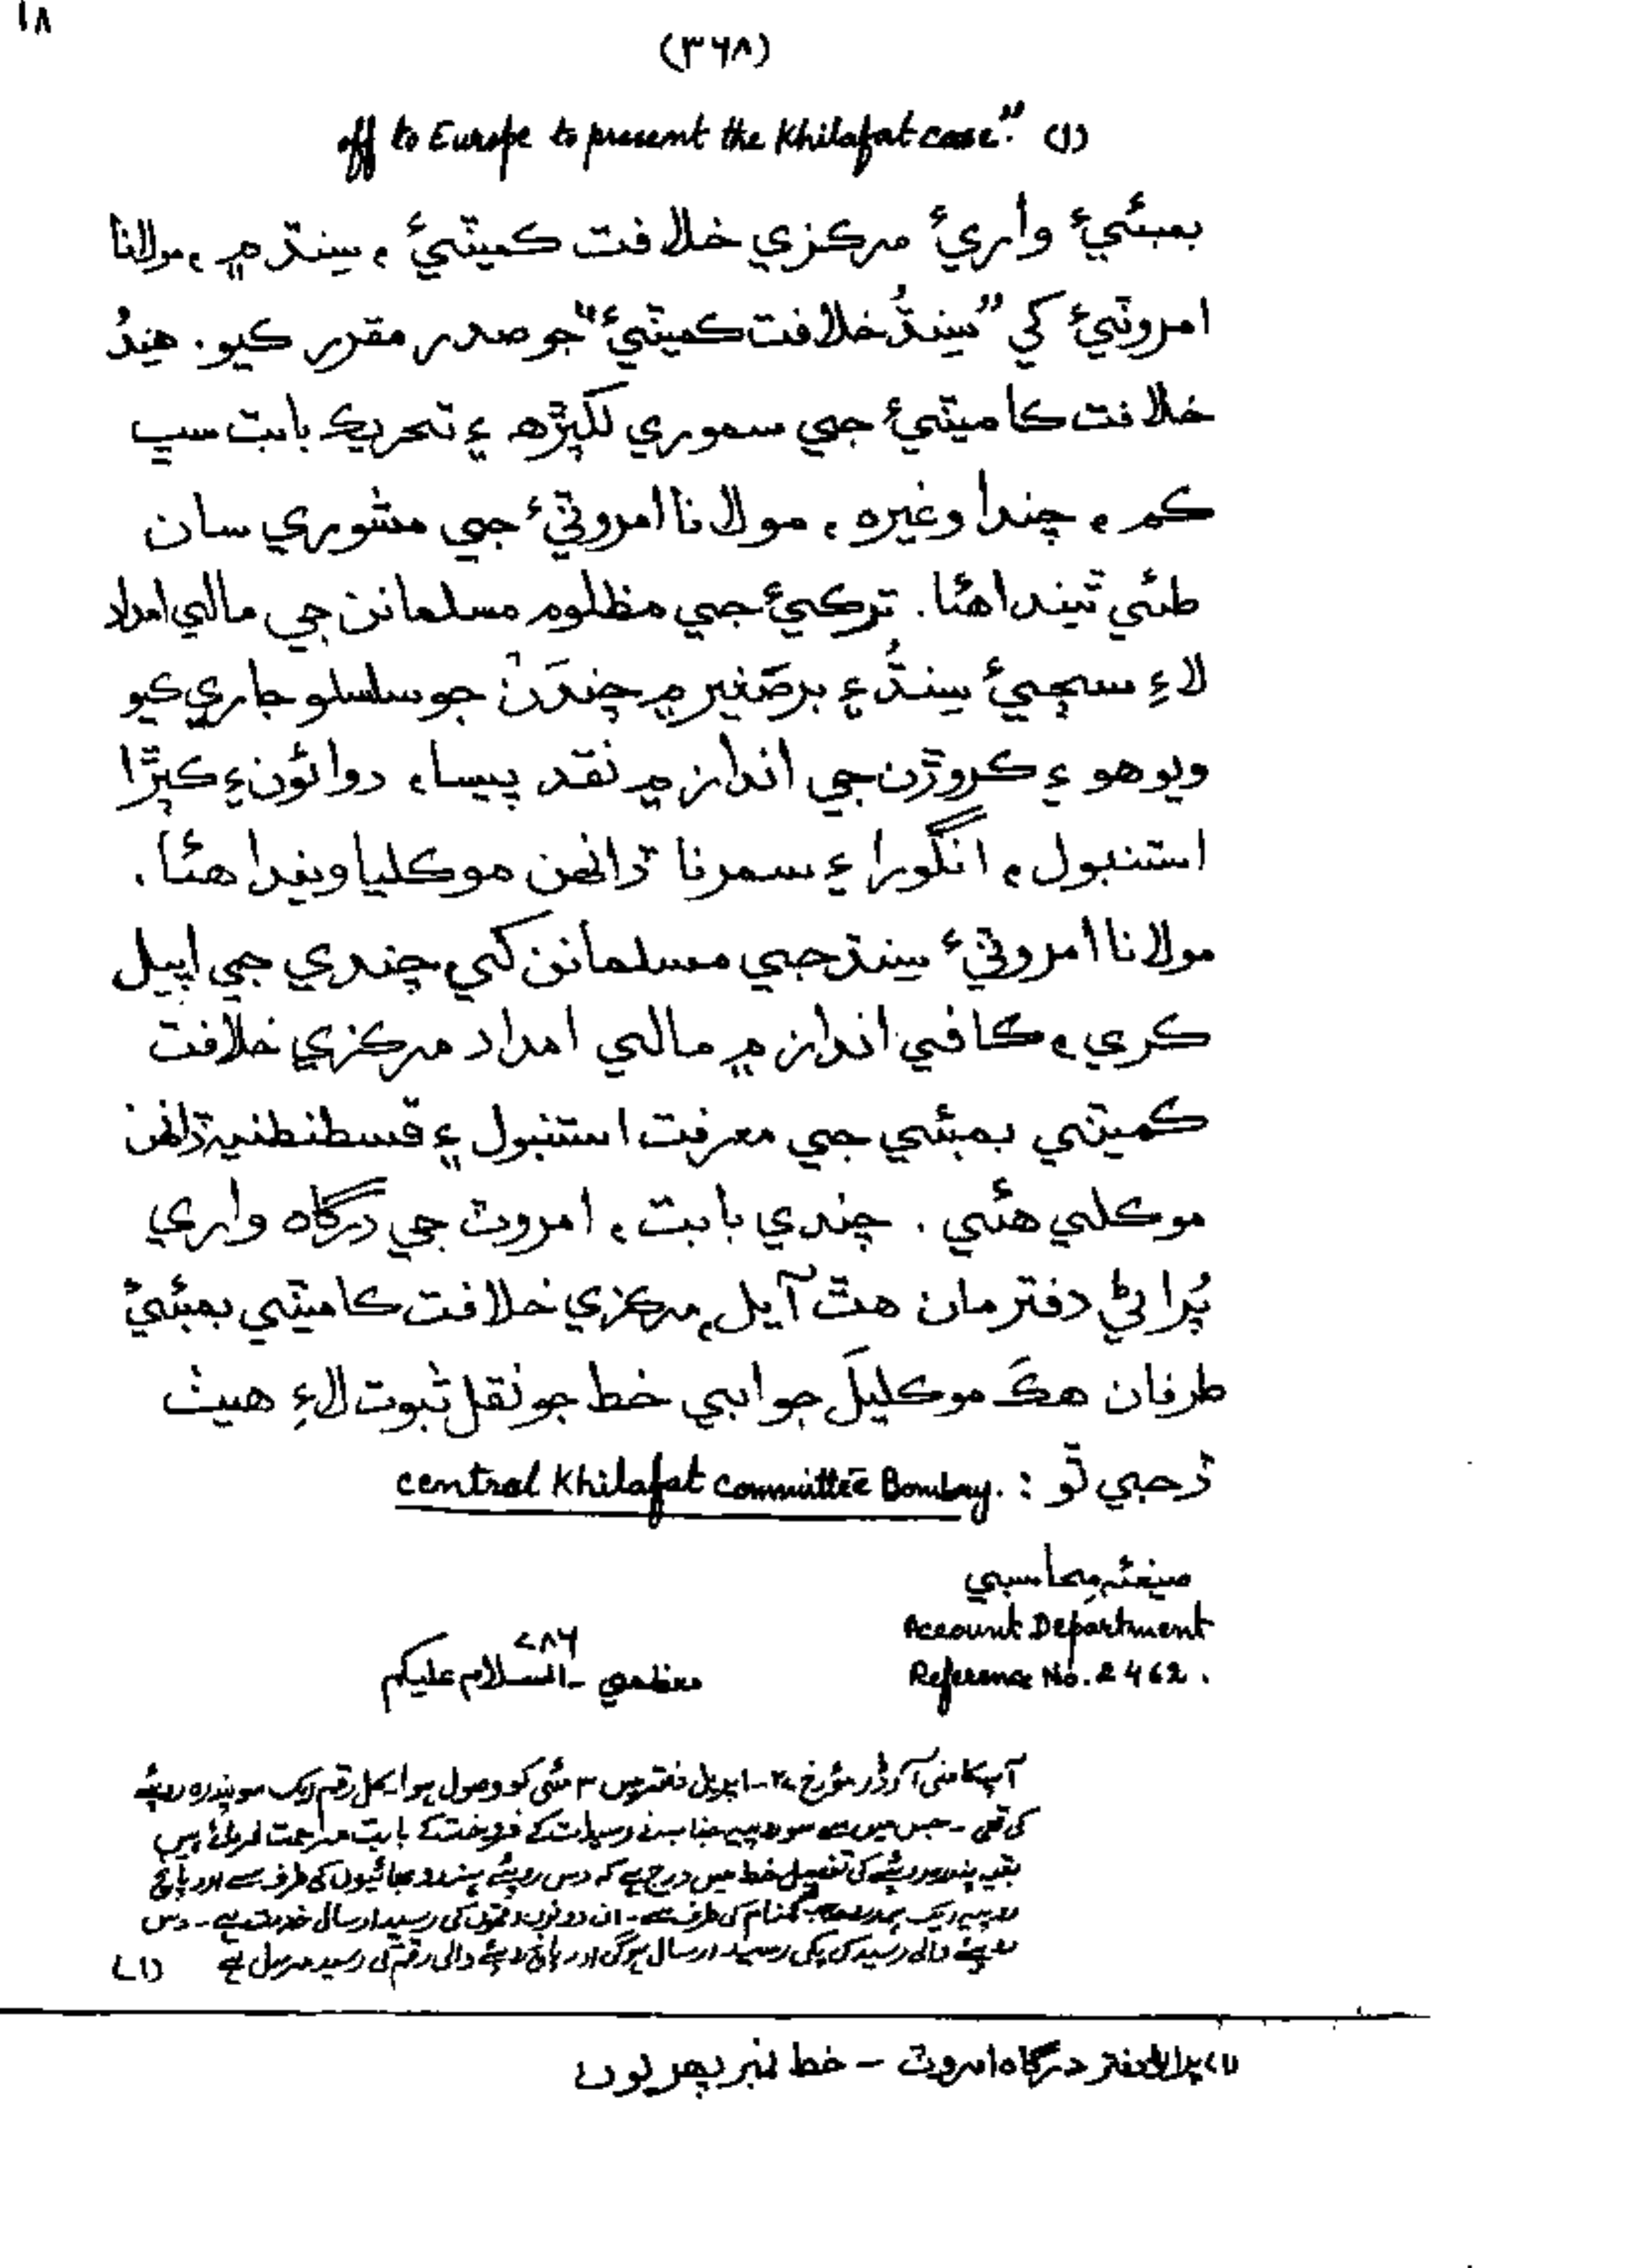 ١٨
(٣٦٨)
off to Europe to present the Khilafat case." (١)
بمبئيءَ واريءَ مرڪزي خلافت ڪميٽيءَ، سِنڌ ۾، مولانا
امروٽيءَ کي ”سِنڌُ خلافت ڪميٽيءَ“ جو صدر مقرر ڪيو. هِندُ
خلافت ڪاميٽيءَ جي سموري لکپڙهه ۽ تحريڪ بابت سڀ
ڪم، چندا وغيره، مولانا امروٽيءَ جي مشوري سان
طئي ٿيندا هئا. ترڪيءَ جي مظلوم مسلمانن جي مالي امداد
لاءِ سڄيءَ سِنڌُ ۽ برصَغير ۾ چندَنْ جو سلسلو جاري ڪيو
ويو هو ۽ ڪروڙن جي انداز ۾ نقد پيسا، دوائون ۽ ڪپڙا
استنبول، انگورا ۽ سمرنا ڏانهن موڪليا ويندا هئا.
مولانا امروٽيءَ سِنڌ جي مسلمانن کي چندي جي اپيل
ڪري، ڪافي انداز ۾ مالي امداد مرڪزي خلافت
ڪميٽي بمبئي جي معرفت استنبول ۽ قسطنطنيه ڏانهن
موڪلي هئي. چندي بابت، امروٽ جي درگاه واري
پُراڻي دفتر مان هٿ آيل، مرڪزي خلافت ڪاميٽي بمبئيءَ
طرفان هڪَ موڪليلَ جوابي خط جو نقل ثبوت لاءِ هيٺ
ڏجي ٿو : Central Khilafat Committee Bombay.
صيغئه محاسبي
Account Department
٧٨٦
Reference No. 2462.
معظمي ـ السلام عليكم
آپکا منی آرڈر مؤرخ ٢٠ـ اپریل دفتر میں ٣ مئی کو وصول ہوا کل رقم ایک سو پندرہ روپئے
کی تھی ـ جس میں سے سو روپیہ جناب نے رسیدات کے فروخت کے بابت مراجعت فرمائے ہیں
بقیہ پندرہ روپئے کی تفصیل خط میں درج ہے کہ دس روپئے ہندو بھائیوں کی طرف سے اور پانچ
روپیہ ایک گمنام کی طرف سے ـ ان دونوں رقموں کی رسید ارسال خدمت ہے ـ دس
روپئے والی رسید کی پکی رسید ارسال ہوگی اور پانچ روپئے والی رقم کی رسید مرسل ہے (١)
(١) پراڻو دفتر درگاه امروٽ ـ خط نمبر پهريون